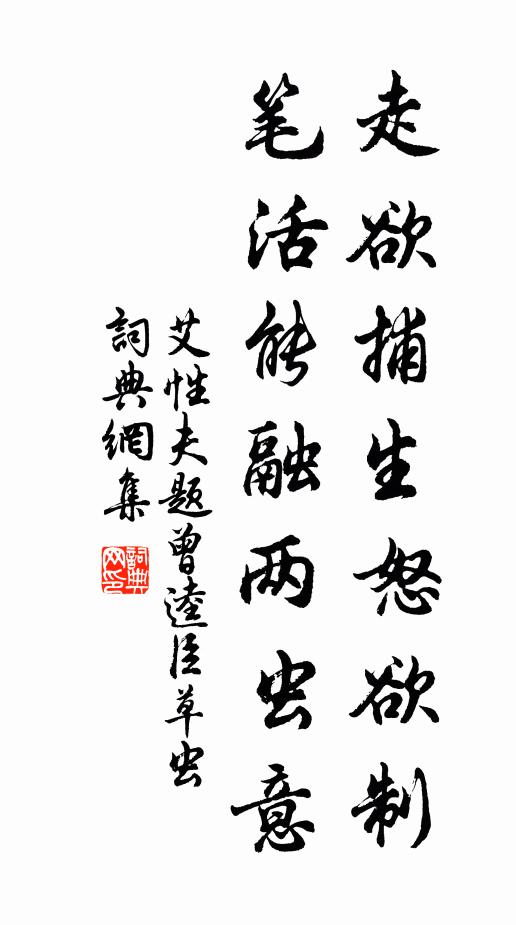 走欲捕生怒欲制
笔活能融两虫意
艾性夫题曾逵臣草虫
詞典網集
詞典网印